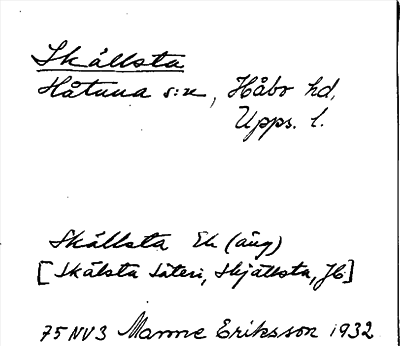 Skållsta
Håtuna s:n, Håbo hd,
Upps. l.
Skållsta Ek (äng)
[Skålsta Säteri, Skjällsta, JC]
75NV3 Manne Eriksson 1932